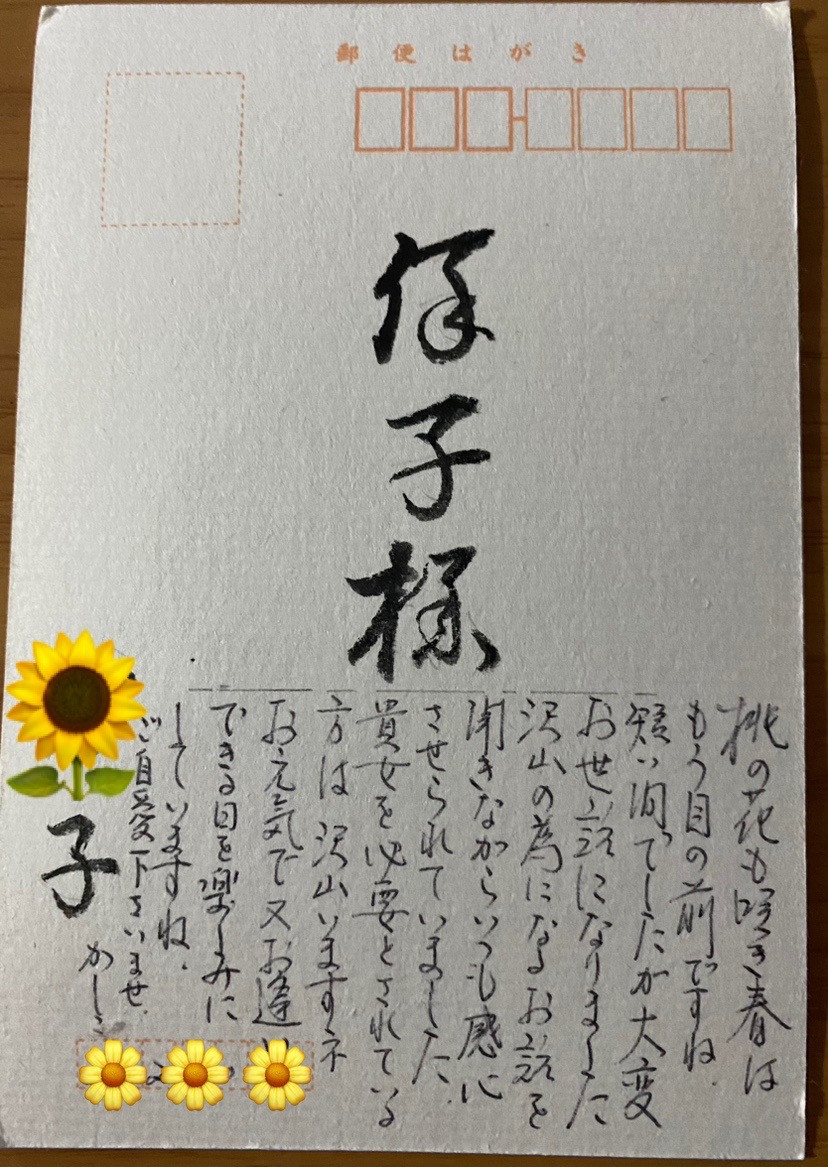 郵便はがき
保子様
桃の花も咲き春は
もう目の前ですね.
短い間でしたが大変
お世話になりました
沢山の為になるお話を
聞きながらいつも感心
させられていました.
貴女を必要とされている
方は沢山いますネ
お元気で又お逢い
できる日を楽しみに
していますね.
ご自愛下さいませ.
かしこ
子